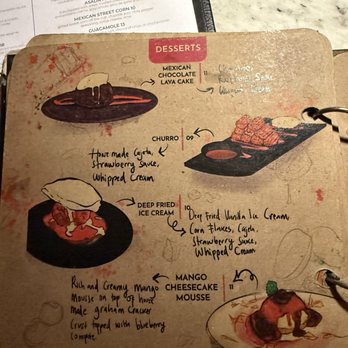 MEXICAN STREET CORN 10
GUACAMOLE 13
DESSERTS
MEXICAN
CHOCOLATE
LAVA CAKE
11
Whipped Cream
CHURRO
09
Home made Cajeta,
Strawberry Sauce,
Whipped Cream
DEEP FRIED
ICE CREAM
10
Deep Fried Vanilla Ice Cream,
Corn Flakes, Cajeta,
Strawberry Sauce,
Whipped Cream
MANGO
CHEESECAKE
MOUSSE
11
Rich and Creamy Mango
Mousse on top of Home
made graham cracker
Crust topped with blueberry
compote